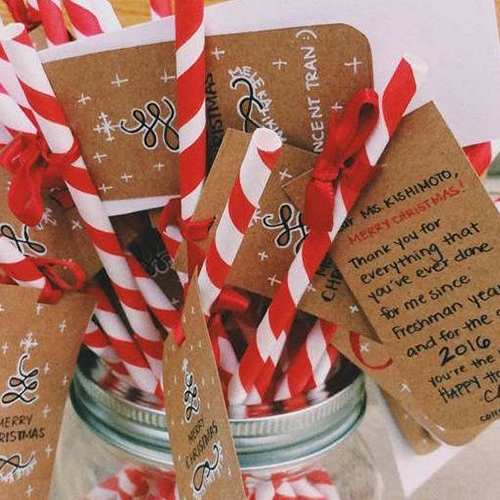 CHRISTMAS
VINCENT TRAN :)
MS. KISHIMOTO,
MERRY CHRISTMAS!
Thank you for
everything that
you've ever done
for me since
Freshman year
and for the
2016
you're the
HAPPY
MERRY
CHRISTMAS
MERRY
CHRISTMAS